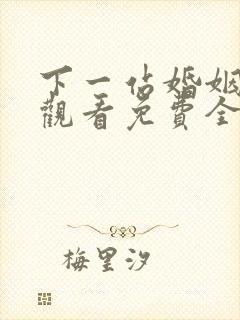 下一站婚姻
觀看免費全
梅里汐